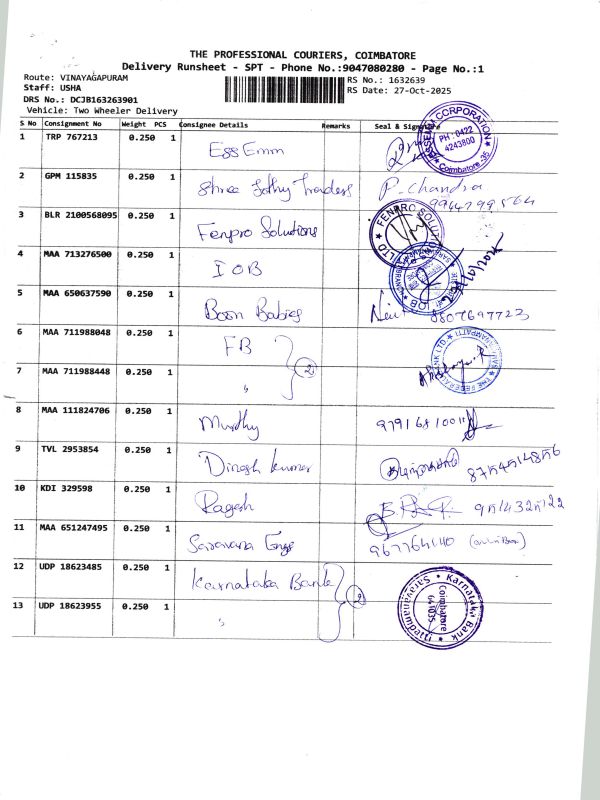 THE PROFESSIONAL COURIERS, COIMBATORE
Delivery Runsheet - SPT - Phone No.:9047080280 - Page No.:1
Route: VINAYAGAPURAM
RS No.: 1632639
Staff: USHA
RS Date: 27-Oct-2025
DRS No.: DCJB163263901
Vehicle: Two Wheeler Delivery
S No Consignment No Weight PCS Consignee Details Remarks Seal & Signature
1 TRP 767213 0.250 1 Ess Emm
CORPORATION PH : 0422 4243800 Coimbatore-35
2 GPM 115835 0.250 1 Shree Jothy Traders P. Chandra
9944799564
3 BLR 2100568095 0.250 1 Fenpro Solutions
FENPRO SOLUTIONS LTD
4 MAA 713276500 0.250 1 IOB
IOB
5 MAA 650637590 0.250 1 Boon Babies 8807697723
6 MAA 711988048 0.250 1 FB
THE FEDERAL BANK LTD
7 MAA 711988448 0.250 1 " 2
8 MAA 111824706 0.250 1 Murthy
9 TVL 2953854 0.250 1 Dinesh kumar
10 KDI 329598 0.250 1 Ragesh
11 MAA 651247495 0.250 1 Saravana Engg
12 UDP 18623485 0.250 1 Karnataka Bank
13 UDP 18623955 0.250 1 " 2
Karnataka Bank Coimbatore 641035 Saravanampatti